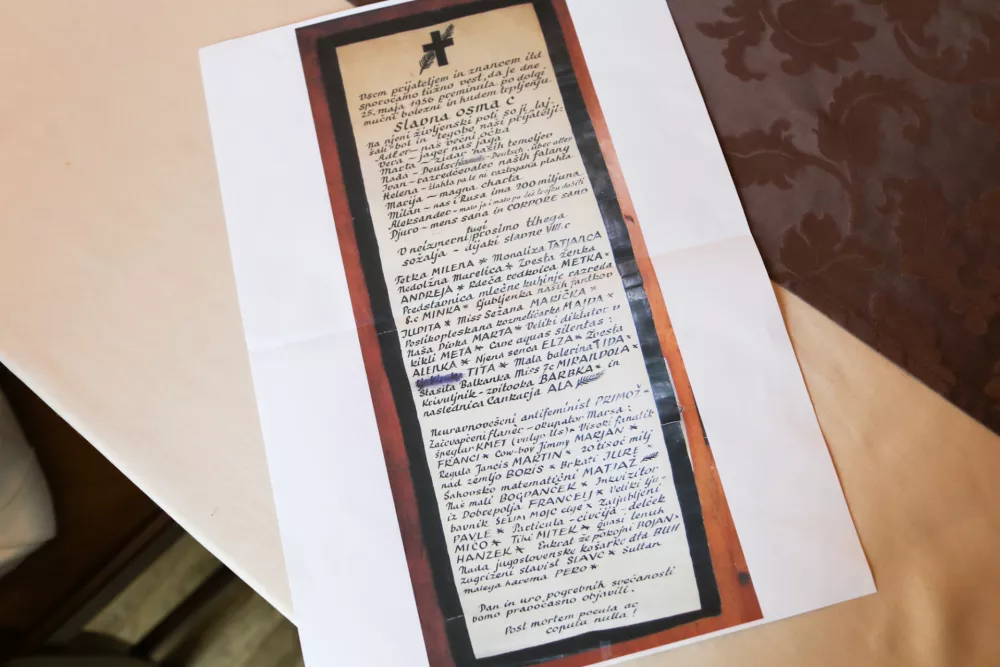 Vsem prijateljem in znancem itd
sporočamo tužno vest, da je dne
25. maja 1956 preminula po dolgi,
mučni bolezni in hudem trpljenju
Slavna osma c
Na njeni življenski poti so ji laj-
šali bol in tegobe naši prijatelji:
Adler – naš večni očka
Vera – jager nas jaga
Marta – zidar naših temeljev
Nada – Deutsch Deutsch, über alles
Ivan – razredčevalec naših falang
Helena – žlahta pa le ni raztrgana plahta
Marija – magna charta
Milan – nas i Rusa ima 200 miljuna
Aleksander – malo ja i malo pa
Djuro – mens sana in CORPORE SANO
V neizmerni tugi prosimo tihega
sožalja – dijaki slavne VIII.c
Tetka MILENA * Monaliza TATJANCA
Nedolžna Marelica * Zvesta ženka
ANDREJA * Rdeča redkvica METKA *
Predstavnica mlečne kuhinje razreda
8.c MINKA * Ljubljenka naših fantkov
JUDITA * Miss Sežana MARIČKA *
Postikopleskana kozmetičarka MAJDA *
Naša Pivka MARTA * Veliki diktator v
kikli META * Cave aquas silentas:
ALENKA * Njena senca ELZA * Zvesta
TITA * Mala balerina IDA *
Stasita Balkanka Miss 7c MIRANDOLA *
Krivuljnik – zvitooka BARBKA * in
naslednica Cankarja ALA
Neuravnovešeni antifeminist PRIMOŽ –
Zaičvapčeni flaner – okupator Marsa:
špeglar KMET (vulgo Us) * Visoki fanatik
FRANCI * Cow-boy Jimmy MARJAN *
Regula Jancis MARTIN * 20 tisoč milj
nad zemljo BORIS * Brkati JURE *
Šahovsko matematični MATJAŽ
Naš mali BOGDANČEK * Inkvizitor
iz Dobrepolja FRANCELJ * Veliki lju-
bavnik SELIM MOJC cige * Zaljubljeni
PAVLE * Particula – civcija – delček
MIČO * Tihi MITEK * Quasi lenuh
HANZEK * Enkrat že pokojni BOJAN *
Nada jugoslovenske košarke dta RUH
zagrizeni slavist SLAVC * Sultan
malega harema PERO *
Dan in uro pogrebnih svečanosti
bomo pravočasno objavili.
Post mortem pocula ac
copula nulla!